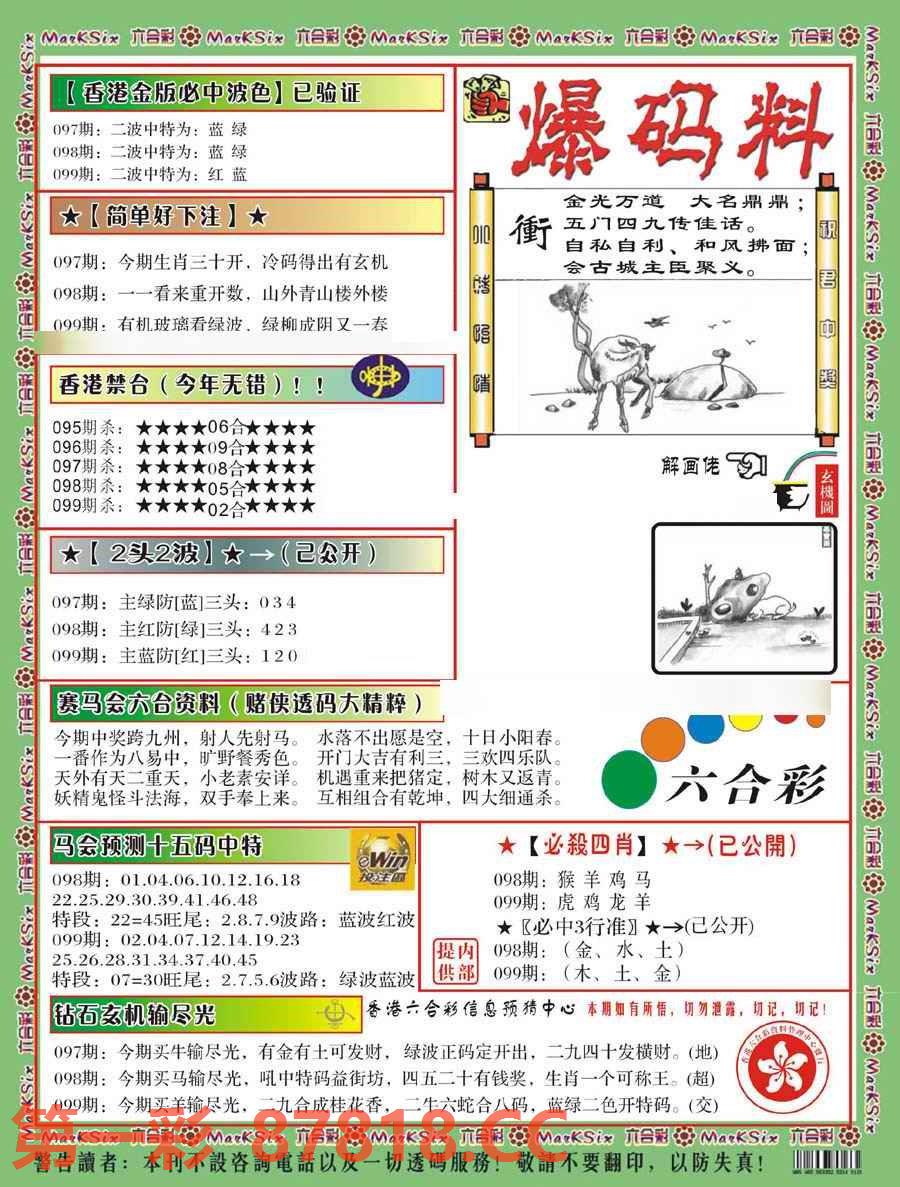 MarKSix 六合彩 MarKSix 六合彩 MarKSix 六合彩 MarKSix 六合彩 MarKSix 六合彩
【香港金版必中波色】已验证
097期：二波中特为：蓝 绿
098期：二波中特为：蓝 绿
099期：二波中特为：红 蓝
★【简单好下注】★
097期：今期生肖三十开，冷码得出有玄机
098期：一一看来重开数，山外青山楼外楼
099期：有机玻璃看绿波，绿柳成阴又一春
香港禁合（今年无错）！！
095期杀：★★★★06合★★★★
096期杀：★★★★09合★★★★
097期杀：★★★★08合★★★★
098期杀：★★★★05合★★★★
099期杀：★★★★02合★★★★
★【2头2波】★→（已公开）
097期：主绿防[蓝]三头：0 3 4
098期：主红防[绿]三头：4 2 3
099期：主蓝防[红]三头：1 2 0
爆码料
衝
金光万道 大名鼎鼎；
五门四九传佳话。
自私自利、和风拂面；
会古城主臣聚义。
祝君中奖
解画佬
玄機圖
赛马会六合资料（赌侠透码大精粹）
今期中奖跨九州，射人先射马。 水落不出愿是空，十日小阳春。
一番作为八易中，旷野餐秀色。 开门大吉有利三，三欢四乐队。
天外有天二重天，小老素安详。 机遇重来把猪定，树木又返青。
妖精鬼怪斗法海，双手奉上来。 互相组合有乾坤，四大细通杀。
六合彩
马会预测十五码中特
eWin
投注网
098期：01.04.06.10.12.16.18
22.25.29.30.39.41.46.48
特段：22=45旺尾：2.8.7.9波路：蓝波红波
099期：02.04.07.12.14.19.23
25.26.28.31.34.37.40.45
特段：07=30旺尾：2.7.5.6波路：绿波蓝波
★【必殺四肖】★→(已公開)
098期：猴 羊 鸡 马
099期：虎 鸡 龙 羊
★〖必中3行准〗★→(已公开)
098期：（金、水、土）
099期：（木、土、金）
提内
供部
钻石玄机输尽光
香港六合彩信息预猜中心 本期如有所悟，切勿泄露，切记，切记！
097期：今期买牛输尽光，有金有土可发财，绿波正码定开出，二九四十发横财。(地)
098期：今期买马输尽光，吼中特码益街坊，四五二十有钱奖，生肖一个可称王。(超)
099期：今期买羊输尽光，二九合成桂花香，二牛六蛇合八码，蓝绿二色开特码。(交)
第一彩 87818.CC
MarKSix 六合彩 MarKSix 六合彩 MarKSix 六合彩 MarKSix 六合彩 MarKSix 六合彩
警告讀者：本刊不設咨詢電話以及一切透碼服務！敬請不要翻印，以防失真！